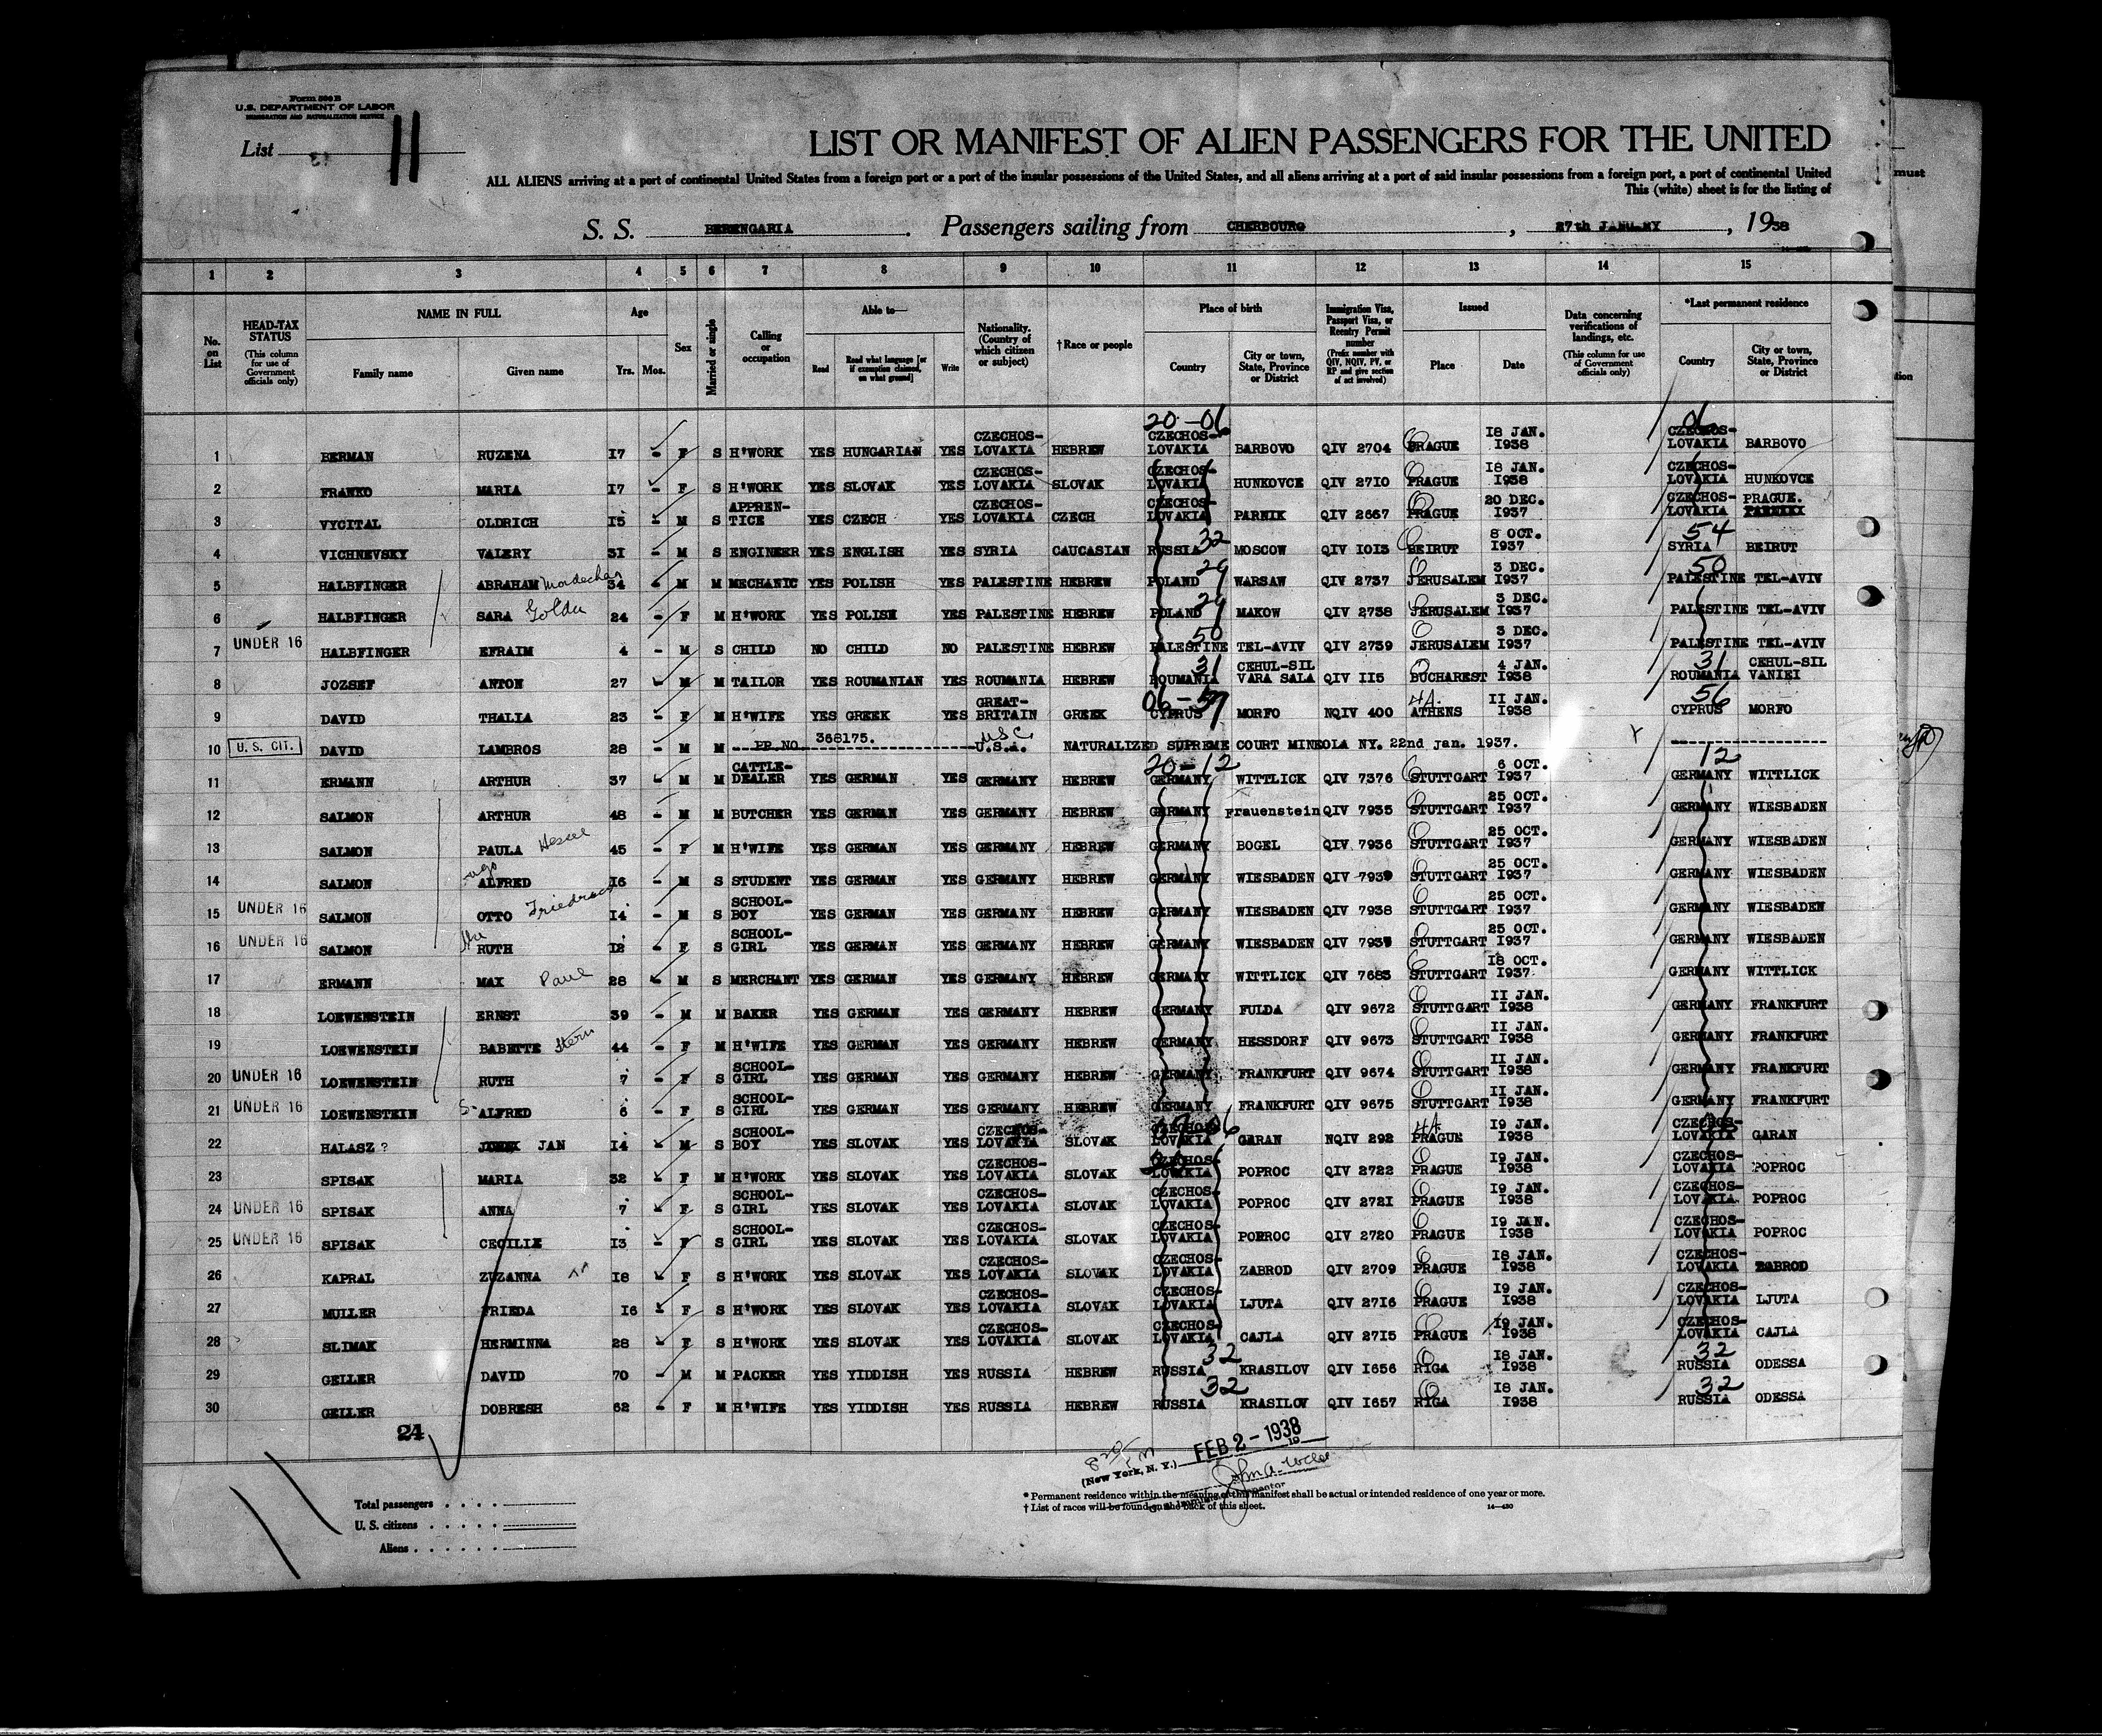 Form 500 B
U.S. DEPARTMENT OF LABOR
IMMIGRATION AND NATURALIZATION SERVICE
List 11
LIST OR MANIFEST OF ALIEN PASSENGERS FOR THE UNITED
ALL ALIENS arriving at a port of continental United States from a foreign port or a port of the insular possessions of the United States, and all aliens arriving at a port of said insular possessions from a foreign port, a port of continental United
This (white) sheet is for the listing of
S. S. BERENGARIA. Passengers sailing from CHERBOURG, 27th JANUARY, 1938
1 2 3 4 5 6 7 8 9 10 11 12 13 14 15
No. on List
HEAD-TAX STATUS (This column for use of Government officials only)
NAME IN FULL Family name Given name
Age Yrs. Mos.
Sex
Married or single
Calling or occupation
Able to— Read Read what language [or if exemption claimed, on what ground] Write
Nationality. (Country of which citizen or subject)
†Race or people
Place of birth Country City or town, State, Province or District
Immigration Visa, Passport Visa, or Reentry Permit number (Prefix number with QIV, NQIV, PV, or RP and give section of act involved)
Issued Place Date
Data concerning verifications of landings, etc. (This column for use of Government officials only)
*Last permanent residence Country City or town, State, Province or District
20-06 06
1 BERMAN RUZENA 17 - F S H'WORK YES HUNGARIAN YES CZECHOS-LOVAKIA HEBREW CZECHOS-LOVAKIA BARBOVO QIV 2704 PRAGUE 18 JAN. 1938 CZECHOS-LOVAKIA BARBOVO
2 FRANKO MARIA 17 - F S H'WORK YES SLOVAK YES CZECHOS-LOVAKIA SLOVAK CZECHOS-LOVAKIA HUNKOVCE QIV 2710 PRAGUE 18 JAN. 1938 CZECHOS-LOVAKIA HUNKOVCE
3 VYCITAL OLDRICH 15 - M S APPREN-TICE YES CZECH YES CZECHOS-LOVAKIA CZECH CZECHOS-LOVAKIA PARNIK QIV 2667 PRAGUE 20 DEC. 1937 CZECHOS-LOVAKIA PRAGUE.
4 VICHNEVSKY VALERY 31 - M S ENGINEER YES ENGLISH YES SYRIA CAUCASIAN RUSSIA 32 MOSCOW QIV 1013 BEIRUT 8 OCT. 1937 SYRIA 54 BEIRUT
5 HALBFINGER ABRAHAM Mordechar 34 - M M MECHANIC YES POLISH YES PALESTINE HEBREW POLAND 29 WARSAW QIV 2737 JERUSALEM 3 DEC. 1937 PALESTINE 50 TEL-AVIV
6 HALBFINGER SARA Golda 24 - F M H'WORK YES POLISH YES PALESTINE HEBREW POLAND 29 MAKOW QIV 2738 JERUSALEM 3 DEC. 1937 PALESTINE TEL-AVIV
7 UNDER 16 HALBFINGER EFRAIM 4 - M S CHILD NO CHILD NO PALESTINE HEBREW PALESTINE 50 TEL-AVIV QIV 2739 JERUSALEM 3 DEC. 1937 PALESTINE TEL-AVIV
8 JOZSEF ANTON 27 - M M TAILOR YES ROUMANIAN YES ROUMANIA HEBREW ROUMANIA 31 CEHUL-SIL VARA SALA QIV 115 BUCHAREST 4 JAN. 1938 ROUMANIA 31 CEHUL-SIL VANIEI
9 DAVID THALIA 23 - F M H'WIFE YES GREEK YES GREAT-BRITAIN GREEK CYPRUS MORFO NQIV 400 4A. ATHENS 11 JAN. 1938 CYPRUS 56 MORFO
10 U. S. CIT. DAVID LAMBROS 28 - M M PP.NO. 368175. U.S.A. USC NATURALIZED SUPREME COURT MINEOLA NY. 22nd Jan. 1937.
11 ERMANN ARTHUR 37 - M M CATTLE-DEALER YES GERMAN YES GERMANY HEBREW 20-12 GERMANY WITTLICK QIV 7376 STUTTGART 6 OCT. 1937 12 GERMANY WITTLICK
12 SALMON ARTHUR 48 - M M BUTCHER YES GERMAN YES GERMANY HEBREW GERMANY Frauenstein QIV 7935 STUTTGART 25 OCT. 1937 GERMANY WIESBADEN
13 SALMON PAULA 45 - F M H'WIFE YES GERMAN YES GERMANY HEBREW GERMANY BOGEL QIV 7936 STUTTGART 25 OCT. 1937 GERMANY WIESBADEN
14 SALMON ALFRED 16 - M S STUDENT YES GERMAN YES GERMANY HEBREW GERMANY WIESBADEN QIV STUTTGART 25 OCT. 1937 GERMANY WIESBADEN
15 UNDER 16 SALMON OTTO 14 - M S SCHOOL-BOY YES GERMAN YES GERMANY HEBREW GERMANY WIESBADEN QIV 7938 STUTTGART 25 OCT. 1937 GERMANY WIESBADEN
16 UNDER 16 SALMON RUTH 12 - F S SCHOOL-GIRL YES GERMAN YES GERMANY HEBREW GERMANY WIESBADEN QIV STUTTGART 25 OCT. 1937 GERMANY WIESBADEN
17 ERMANN MAX Paul 28 - M S MERCHANT YES GERMAN YES GERMANY HEBREW GERMANY WITTLICK QIV 7683 STUTTGART 18 OCT. 1937 GERMANY WITTLICK
18 LOEWENSTEIN ERNST 39 - M M BAKER YES GERMAN YES GERMANY HEBREW GERMANY FULDA QIV 9672 STUTTGART 11 JAN. 1938 GERMANY FRANKFURT
19 LOEWENSTEIN BABETTE Stern 44 - F M H'WIFE YES GERMAN YES GERMANY HEBREW GERMANY HESSDORF QIV 9673 STUTTGART 11 JAN. 1938 GERMANY FRANKFURT
20 UNDER 16 LOEWENSTEIN RUTH 7 - F S SCHOOL-GIRL YES GERMAN YES GERMANY HEBREW GERMANY FRANKFURT QIV 9674 STUTTGART 11 JAN. 1938 GERMANY FRANKFURT
21 UNDER 16 LOEWENSTEIN S- ALFRED 6 - F S SCHOOL-GIRL YES GERMAN YES GERMANY HEBREW GERMANY FRANKFURT QIV 9675 STUTTGART 11 JAN. 1938 GERMANY FRANKFURT
22 HALASZ ? JAN 14 - M S SCHOOL-BOY YES SLOVAK YES CZECHOS-LOVAKIA SLOVAK CZECHOS-LOVAKIA GARAN NQIV 292 4A PRAGUE 19 JAN. 1938 CZECHOS-LOVAKIA 06 GARAN
23 SPISAK MARIA 32 - F M H'WORK YES SLOVAK YES CZECHOS-LOVAKIA SLOVAK CZECHOS-LOVAKIA POPROC QIV 2722 PRAGUE 19 JAN. 1938 CZECHOS-LOVAKIA POPROC
24 UNDER 16 SPISAK ANNA 7 - F S SCHOOL-GIRL YES SLOVAK YES CZECHOS-LOVAKIA SLOVAK CZECHOS-LOVAKIA POPROC QIV 2721 PRAGUE 19 JAN. 1938 CZECHOS-LOVAKIA POPROC
25 UNDER 16 SPISAK CECILIE 13 - F S SCHOOL-GIRL YES SLOVAK YES CZECHOS-LOVAKIA SLOVAK CZECHOS-LOVAKIA POPROC QIV 2720 PRAGUE 19 JAN. 1938 CZECHOS-LOVAKIA POPROC
26 KAPRAL ZUZANNA 18 - F S H'WORK YES SLOVAK YES CZECHOS-LOVAKIA SLOVAK CZECHOS-LOVAKIA ZABROD QIV 2709 PRAGUE 18 JAN. 1938 CZECHOS-LOVAKIA ZABROD
27 MULLER FRIEDA 16 - F S H'WORK YES SLOVAK YES CZECHOS-LOVAKIA SLOVAK CZECHOS-LOVAKIA LJUTA QIV 2716 PRAGUE 19 JAN. 1938 CZECHOS-LOVAKIA LJUTA
28 SLIMAK HERMINNA 28 - F S H'WORK YES SLOVAK YES CZECHOS-LOVAKIA SLOVAK CZECHOS-LOVAKIA CAJLA QIV 2715 PRAGUE 19 JAN. 1938 CZECHOS-LOVAKIA CAJLA
29 GELLER DAVID 70 - M M PACKER YES YIDDISH YES RUSSIA HEBREW RUSSIA 32 KRASILOV QIV 1656 RIGA 18 JAN. 1938 RUSSIA 32 ODESSA
30 GELLER DOBRESH 62 - F M H'WIFE YES YIDDISH YES RUSSIA HEBREW RUSSIA 32 KRASILOV QIV 1657 RIGA 18 JAN. 1938 RUSSIA 32 ODESSA
24
(New York, N. Y.) FEB 2 - 1938
Total passengers
U. S. citizens
Aliens
* Permanent residence within the meaning of this manifest shall be actual or intended residence of one year or more.
† List of races will be found on the back of this sheet.
14—430
must